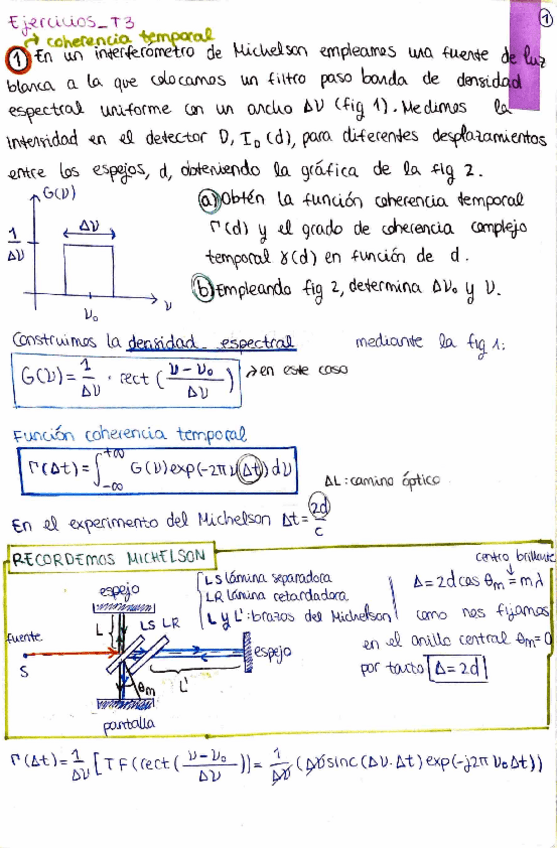 Ejercicios_T3
①
→ coherencia temporal
① En un interferómetro de Michelson empleamos una fuente de luz
blanca a la que colocamos un filtro paso banda de densidad
espectral uniforme con un ancho Δν (fig 1). Medimos la
intensidad en el detector D, I_D (d), para diferentes desplazamientos
entre los espejos, d, obteniendo la gráfica de la fig 2.
G(ν)
1/Δν
Δν
ν₀
ν
a) Obtén la función coherencia temporal
Γ(d) y el grado de coherencia complejo
temporal γ(d) en función de d.
b) Empleando fig 2, determina Δν₀ y ν.
Construimos la densidad espectral mediante la fig 1:
G(ν) = 1/Δν · rect ( (ν - ν₀)/Δν ) → en este caso
Función coherencia temporal
Γ(Δt) = ∫_{-∞}^{+∞} G(ν) exp(-2πν Δt) dν
ΔL: camino óptico
En el experimento del Michelson Δt = 2d/c
RECORDEMOS MICHELSON
espejo
L
LS LR
fuente
S
espejo
θm
L'
pantalla
LS lámina separadora
LR lámina retardadora
L y L': brazos del Michelson
centro brillante
Δ = 2d cos θm = mλ
como nos fijamos
en el anillo central θm = 0
por tanto Δ = 2d
Γ(Δt) = 1/Δν [TF(rect( (ν - ν₀)/Δν ))] = 1/Δν (Δν sinc(Δν·Δt) exp(-j2π ν₀ Δt))